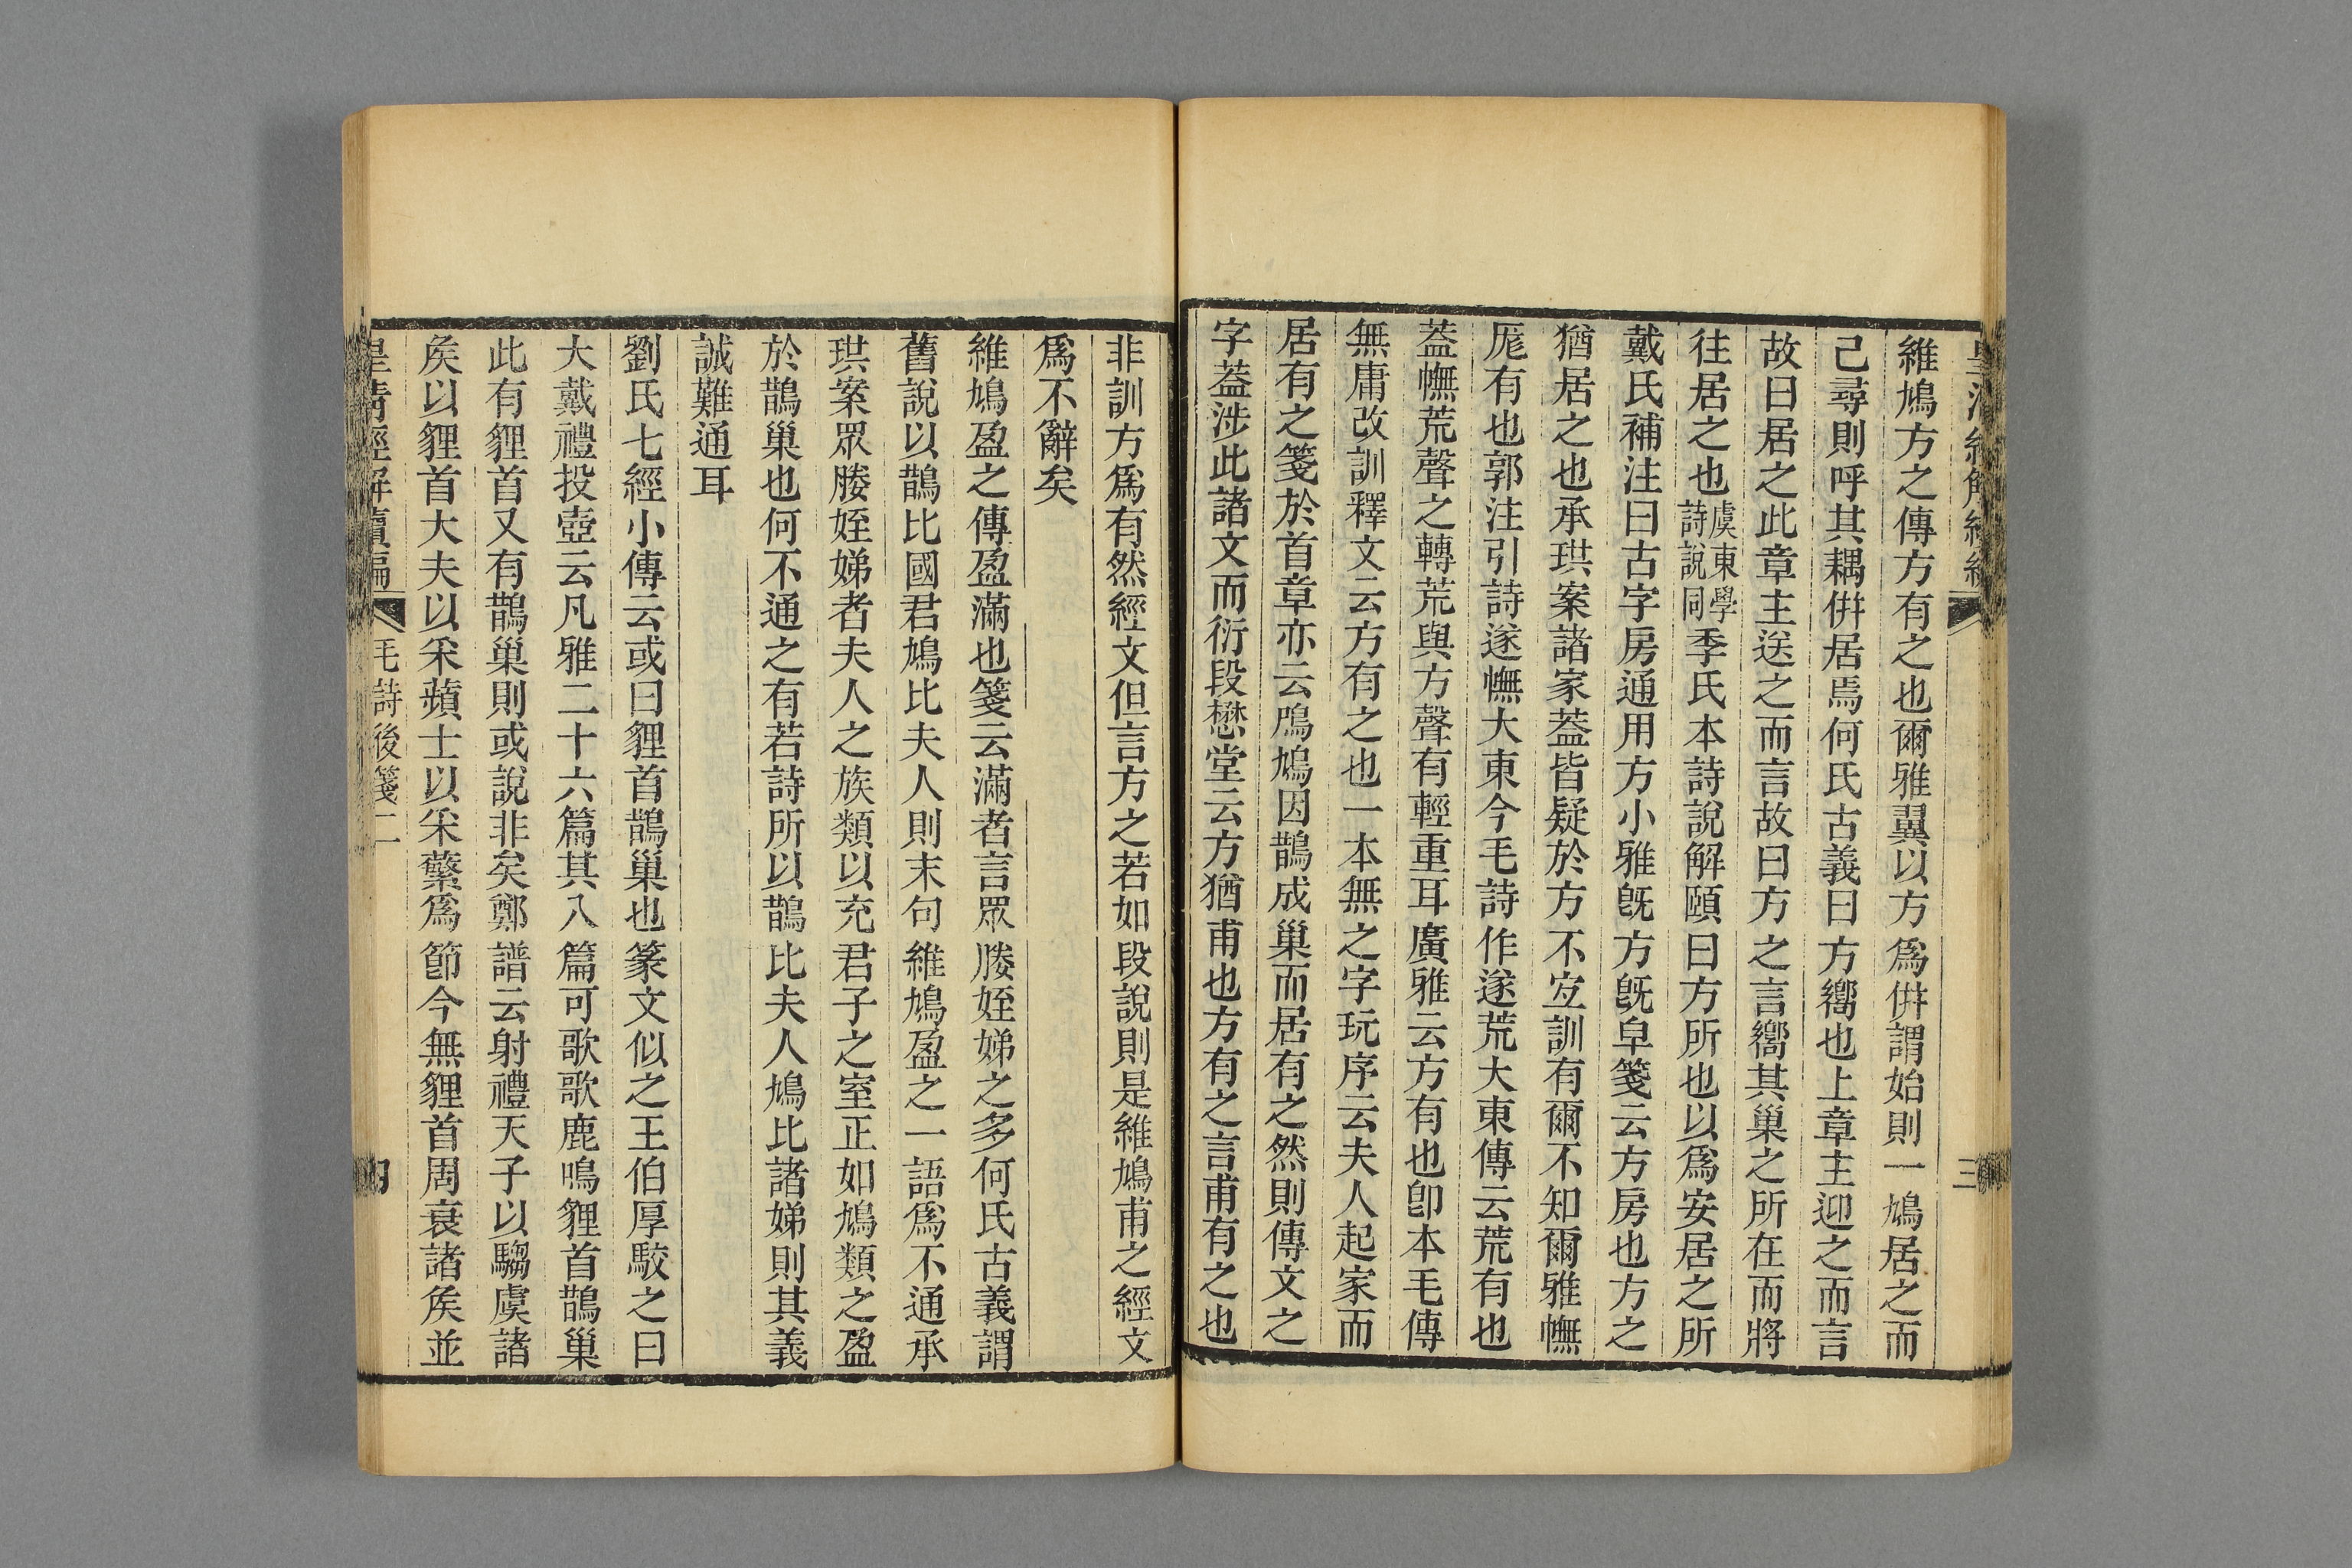 維鳩方之傳方有之也爾雅翼以方爲併謂始則一鳩居之而
己尋則呼其耦併居焉何氏古義曰方嚮也上章主迎之而言
故曰居之此章主送之而言故曰方之言嚮其巢之所在而將
往居之也虞東學詩說同季氏本詩說解頤曰方所也以爲安居之所
戴氏補注曰古字房通用方小雅旣方旣皁箋云方房也方之
猶居之也承珙案諸家葢皆疑於方不宐訓有爾不知爾雅幠
厖有也郭注引詩遂幠大東今毛詩作遂荒大東傳云荒有也
葢幠荒聲之轉荒與方聲有輕重耳廣雅云方有也卽本毛傳
無庸改訓釋文云方有之也一本無之字玩序云夫人起家而
居有之箋於首章亦云鳲鳩因鵲成巢而居有之然則傳文之
字葢涉此諸文而衍段懋堂云方猶甫也方有之言甫有之也
非訓方爲有然經文但言方之若如段說則是維鳩甫之經文
爲不辭矣
維鳩盈之傳盈滿也箋云滿者言眾媵姪娣之多何氏古義謂
舊說以鵲比國君鳩比夫人則末句維鳩盈之一語爲不通承
珙案眾媵姪娣者夫人之族類以充君子之室正如鳩類之盈
於鵲巢也何不通之有若詩所以鵲比夫人鳩比諸娣則其義
誠難通耳
劉氏七經小傳云或曰貍首鵲巢也篆文似之王伯厚駮之曰
大戴禮投壺云凡雅二十六篇其八篇可歌歌鹿鳴貍首鵲巢
此有貍首又有鵲巢則或說非矣鄭譜云射禮天子以騶虞諸
矦以貍首大夫以采蘋士以采蘩爲節今無貍首周衰諸矦並
皇清經解續編 毛詩後箋二 四